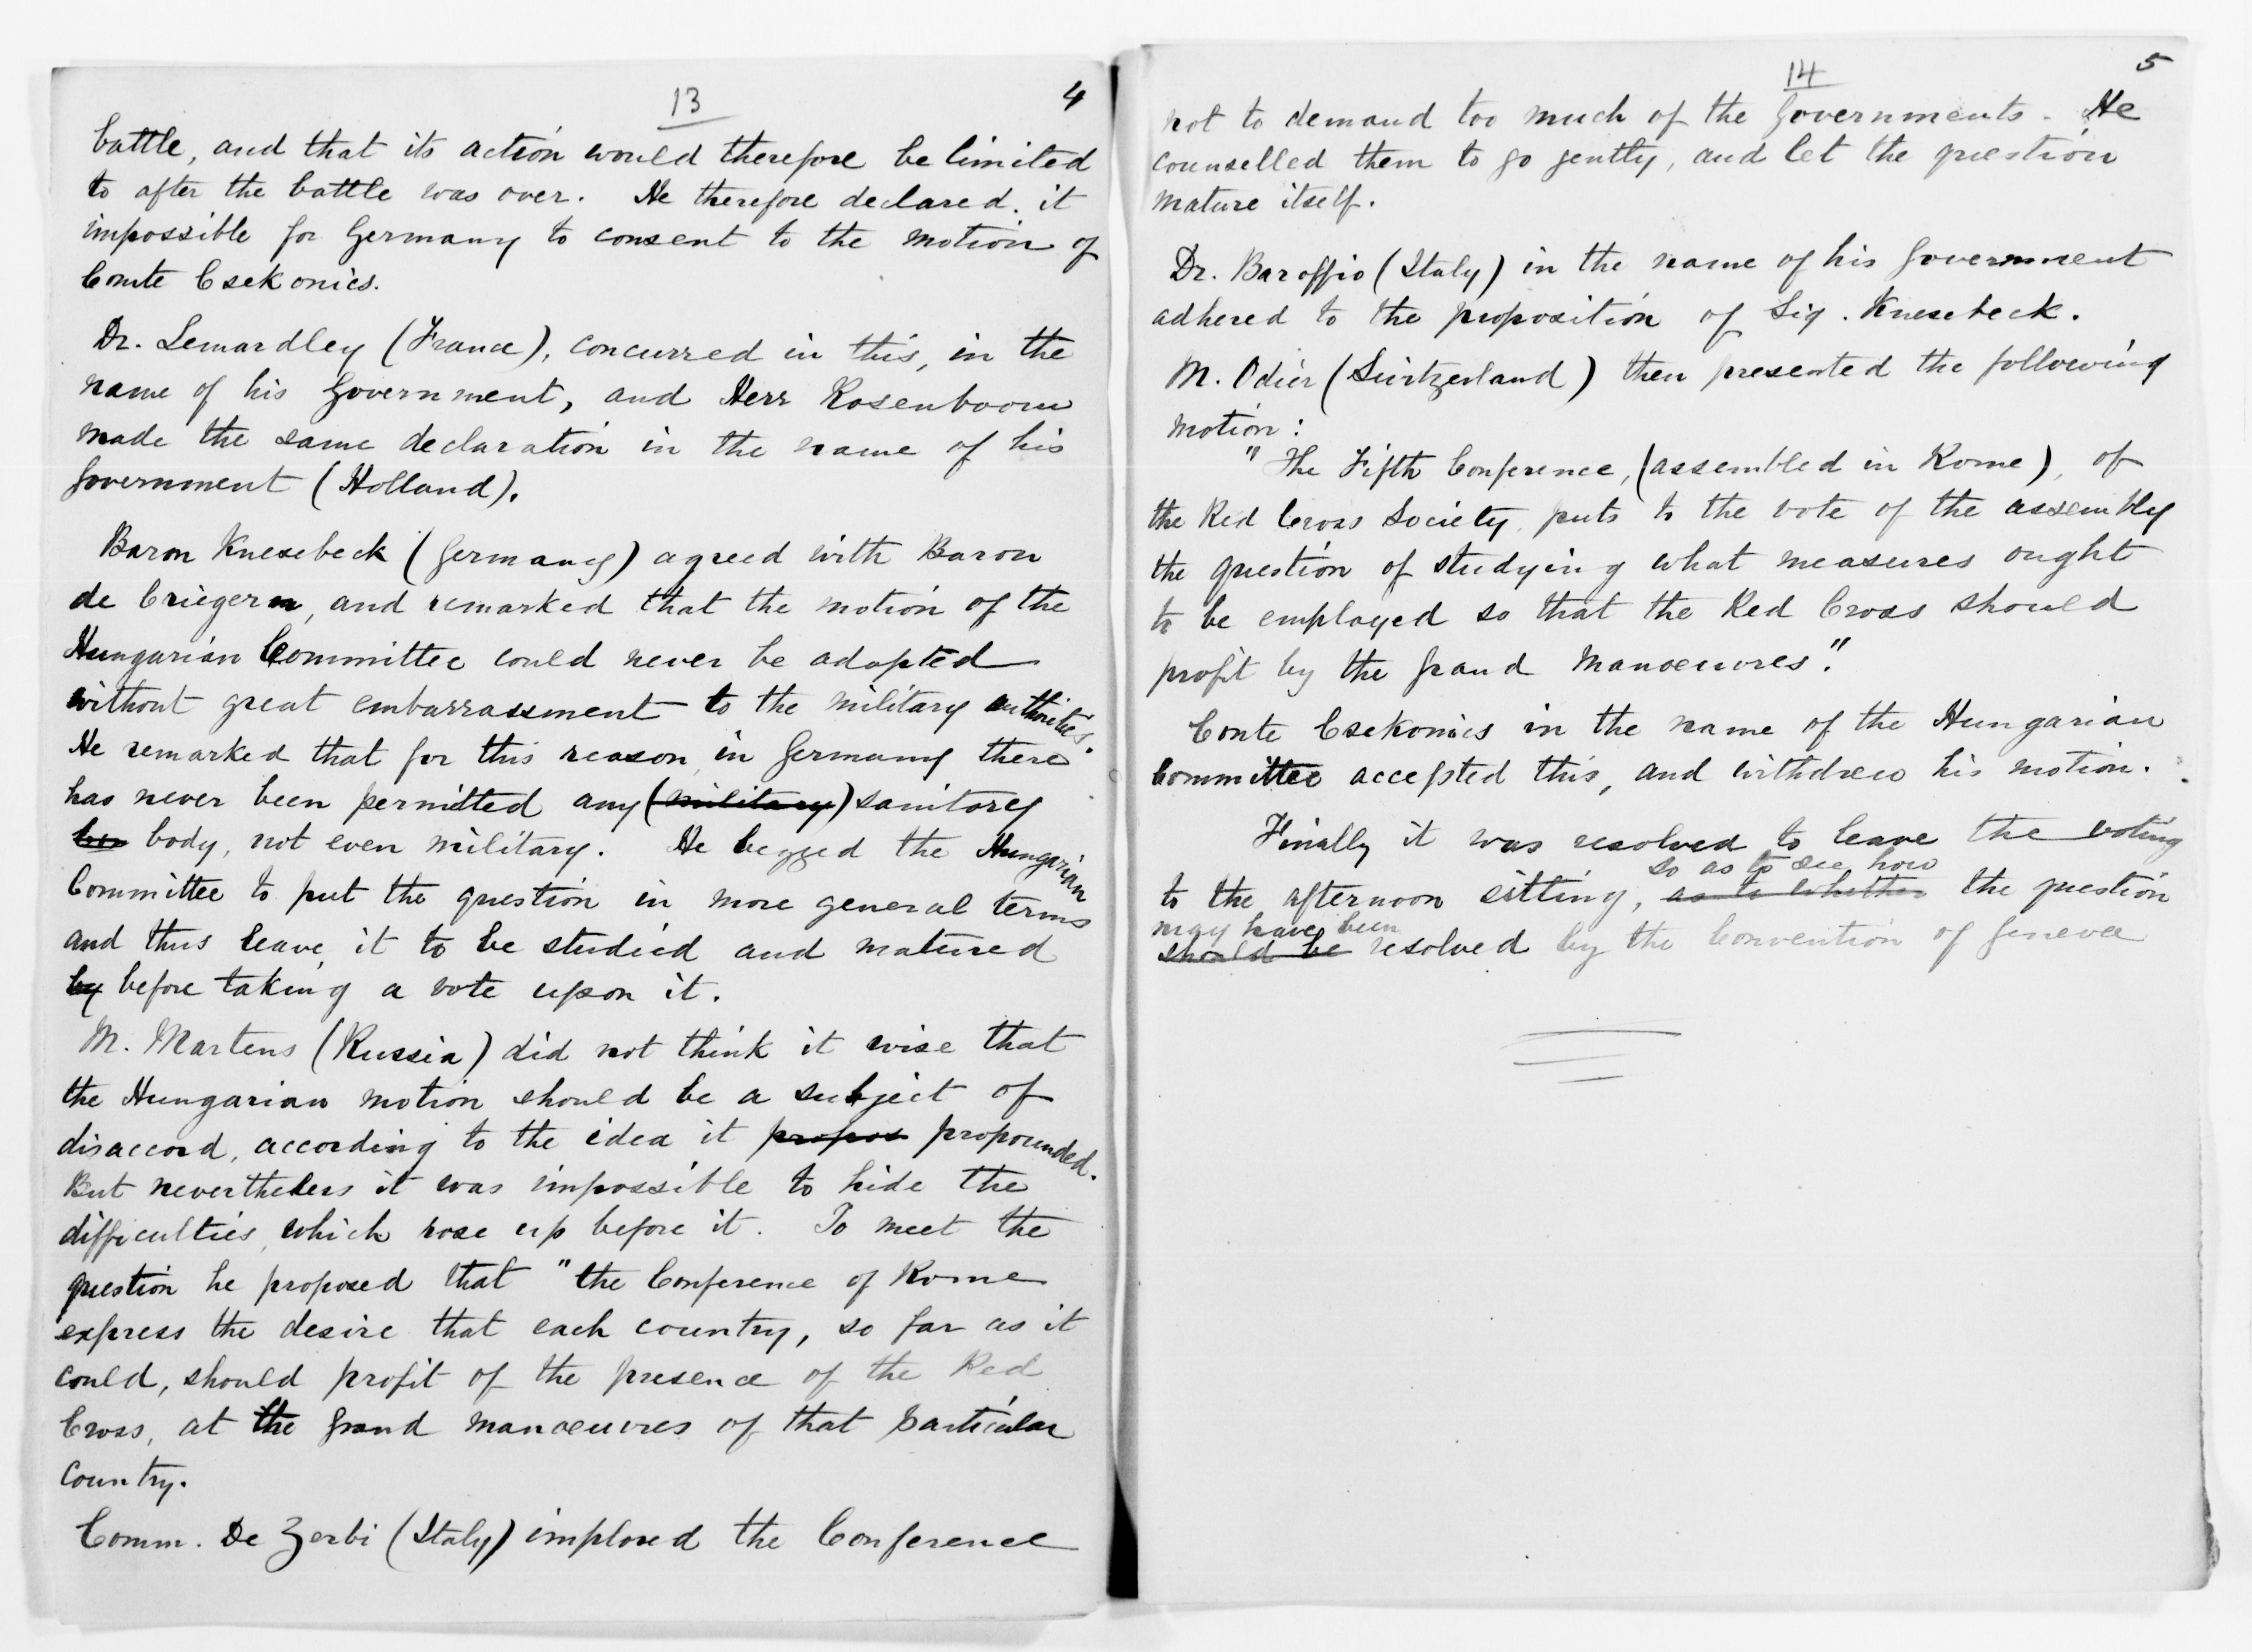 13
4
battle, and that its action would therefore be limited
to after the battle was over. He therefore declared it
impossible for Germany to consent to the motion of
Comte Csekonics.
Dr. Lemardley (France), concurred in this, in the
name of his Government, and Herr Rosenboom
made the same declaration in the name of his
Government (Holland).
Baron Knesebeck (Germany) agreed with Baron
de Criegern, and remarked that the motion of the
Hungarian Committee could never be adopted
without great embarrassment to the military authorities.
He remarked that for this reason, in Germany there
has never been permitted any (military) sanitary
body, not even military. He begged the Hungarian
Committee to put the question in more general terms
and thus leave it to be studied and matured
by before taking a vote upon it.
M. Martens (Russia) did not think it wise that
the Hungarian motion should be a subject of
disaccord, according to the idea it propos propounded.
But nevertheless it was impossible to hide the
difficulties which rose up before it. To meet the
question he proposed that "the Conference of Rome
express the desire that each country, so far as it
could, should profit of the presence of the Red
Cross, at the Grand Manoeuvres of that particular
Country.
Comm. De Zerbi (Italy) implored the Conference
14
5
not to demand too much of the Governments. He
counselled them to go gently, and let the question
mature itself.
Dr. Baroffio (Italy) in the name of his Government
adhered to the proposition of Sig. Knesebeck.
M. Odier (Switzerland) then presented the following
motion:
"The Fifth Conference, (assembled in Rome), of
the Red Cross Society, puts to the vote of the assembly
the question of studying what measures ought
to be employed so that the Red Cross should
profit by the Grand Manoeuvres".
Conte Csekonics in the name of the Hungarian
Committee accepted this, and withdrew his motion.
Finally it was resolved to leave the voting
so as to see how
to the afternoon sitting, as to whether the question
may have been
should be resolved by the Convention of Geneva